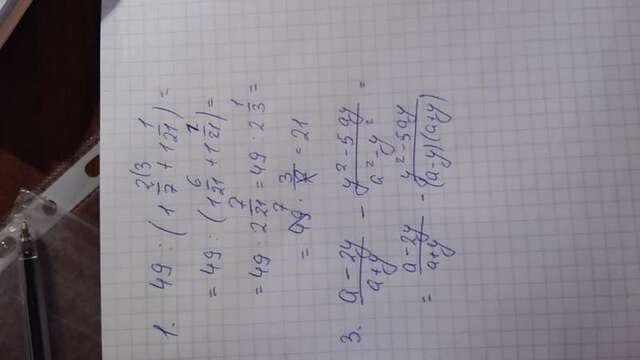 1. 49 : (1 2/7 (3 + 1 1/21) =
= 49 : (1 6/21 + 1 1/21) =
= 49 : 2 7/21 = 49 : 2 1/3 =
= 49 7 · 3/7 = 21
3. a - 2y / a + y - y² - 5ay / a² - y² =
= a - 2y / a + y - y² - 5ay / (a - y)(a + y)